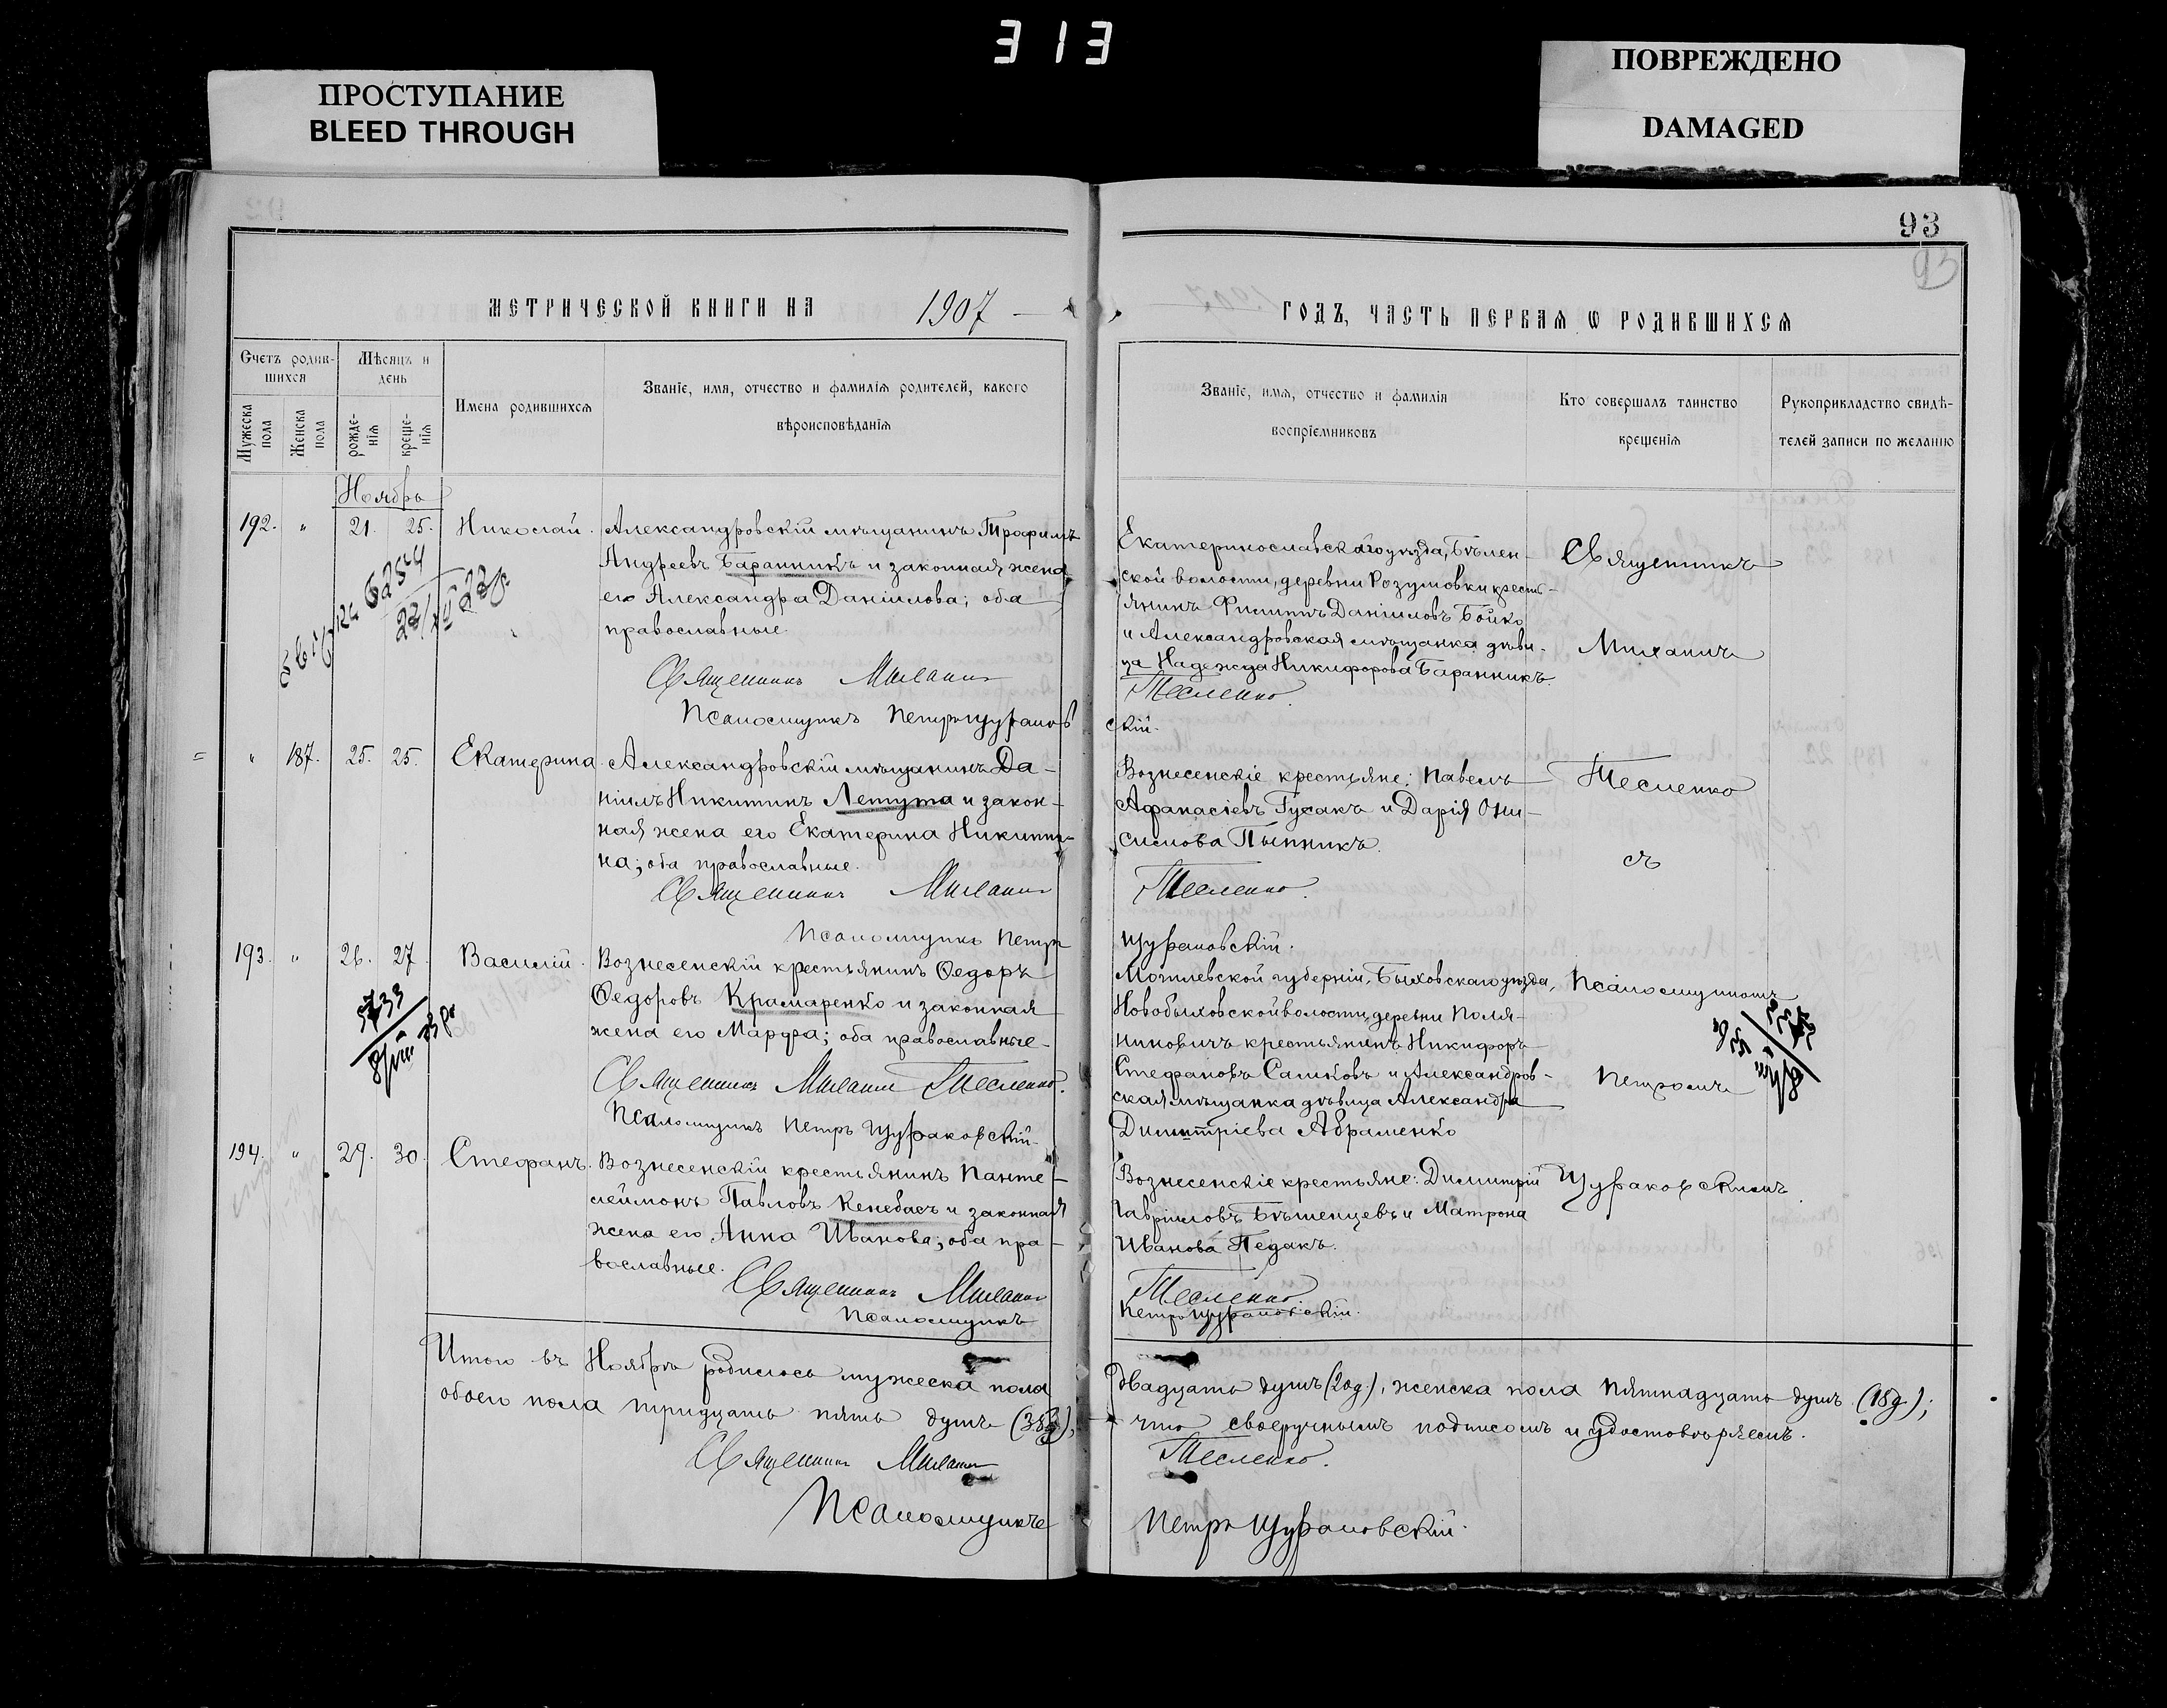 313
ПРОСТУПАНИЕ
BLEED THROUGH
ПОВРЕЖДЕНО
DAMAGED
93
93
МЕТРИЧЕСКОЙ КНИГИ НА 1907
ГОДЪ, ЧАСТЬ ПЕРВАЯ Ѡ РОДИВШИХСЯ
Счетъ родив-
шихся
Мѣсяцъ и
день
Мужеска
пола
Женска
пола
рожде-
нія
креще-
нія
Имена родившихся
Званіе, имя, отчество и фамилія родителей, какого
вѣроисповѣданія
Званіе, имя, отчество и фамилія
воспріемниковъ
Кто совершалъ таинство
крещенія
Рукоприкладство свидѣ-
телей записи по желанію
Ноябрь
192. " 21. 25. Николай.
Александровскій мѣщанинъ Трофимъ
Андреевъ Баранникъ и законная жена
его Александра Даніилова; оба
православные.
6254
Священникъ
Псаломщикъ Петръ Щураков
Екатеринославскаго уѣзда, Бѣлен-
ской волости, деревни Розумовки кресть-
янинъ Филиппъ Даніиловъ Бойко
и Александровская мѣщанка дѣви-
ца Надежда Никифорова Баранникъ.
Тесленко.
скій.
Священникъ
Михаилъ
" 187. 25. 25. Екатерина.
Александровскій мѣщанинъ Да-
ніилъ Никитинъ Летута и закон-
ная жена его Екатерина Никити-
на; оба православные.
Священникъ
Псаломщикъ Петръ
Вознесенскіе крестьяне: Павелъ
Афанасіевъ Гусакъ и Дарія Они-
симова Пынникъ.
Тесленко.
Щураковскій.
Тесленко
съ
193. " 26. 27. Василій.
Вознесенскій крестьянинъ Ѳедоръ
Ѳедоровъ Крамаренко и законная
жена его Марфа; оба православные.
5733
Священникъ Тесленко.
Псаломщикъ Петръ Щураковскій.
Могилевской губерніи, Быховскаго уѣзда,
Новобыховской волости, деревни Поля-
ниновичъ крестьянинъ Никифоръ
Стефановъ Салиховъ и Александров-
ская мѣщанка дѣвица Александра
Димитріева Абраменко
Псаломщикомъ
Петромъ
194. " 29. 30. Стефанъ.
Вознесенскій крестьянинъ Панте-
леймонъ Павловъ Кенебасъ и законная
жена его Анна Иванова; оба пра-
вославные.
Священникъ
Псаломщикъ
Вознесенскіе крестьяне: Димитрій
Гавріиловъ Бѣшенцевъ и Матрона
Иванова Педакъ.
Тесленко.
Петръ Щураковскій.
Щураковскимъ
Итого въ Ноябрѣ родилось мужеска пола двадцать душъ (20 д.), женска пола пятнадцать душъ (15 д.);
обоего пола тридцать пять душъ (35 д.), что своеручнымъ подписомъ и удостовѣряемъ.
Священникъ Тесленко.
Псаломщикъ Петръ Щураковскій.